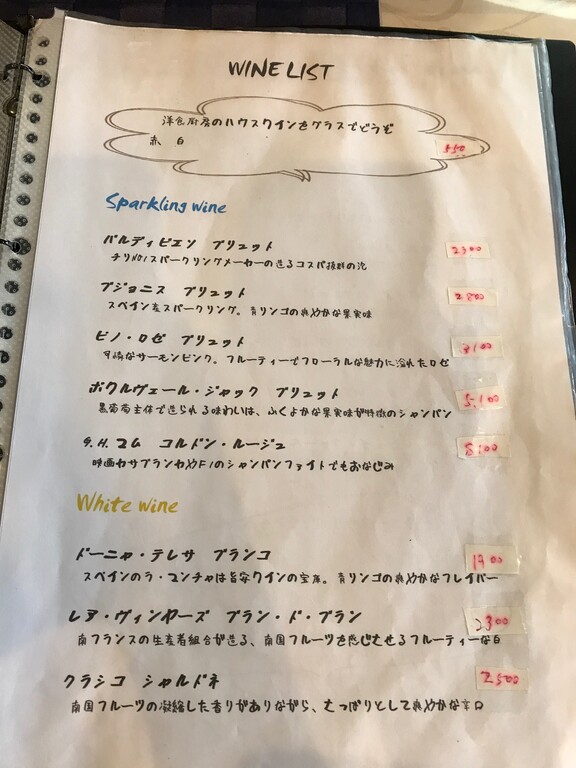 WINE LIST
洋食厨房のハウスワインをグラスでどうぞ
赤 白 550
Sparkling wine
バルディビエソ ブリュット 2300
チリNO1スパークリングメーカーの造るコスパ抜群の泡
ブジョニス ブリュット 2800
スペイン産スパークリング。青リンゴの爽やかな果実味
ピノ・ロゼ ブリュット 3100
可憐なサーモンピンク。フルーティーでフローラルな魅力に溢れたロゼ
ボクルヴェール・ジャック ブリュット 5,100
黒葡萄主体で造られる味わいは、ふくよかな果実味が特徴のシャンパン
G.H.マム コルドン・ルージュ 8100
映画カサブランカやF1のシャンパンファイトでもおなじみ
White wine
ドーニャ・テレサ ブランコ 1900
スペインのラ・マンチャは旨安ワインの宝庫。青リンゴの爽やかなフレイバー
レヌ・ヴィンヤーズ ブラン・ド・ブラン 2300
南フランスの生産者組合が造る、南国フルーツを感じさせるフルーティーな白
クラシコ シャルドネ 2500
南国フルーツの凝縮した香りがありながら、さっぱりとして爽やかな辛口